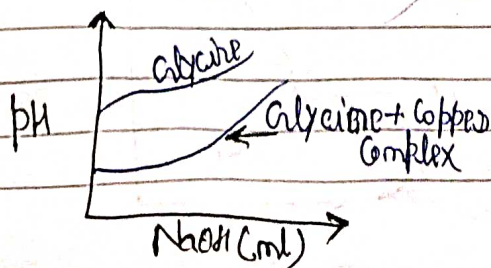 Glycine
pH
Glycine + Copper
Complex
NaOH (ml)